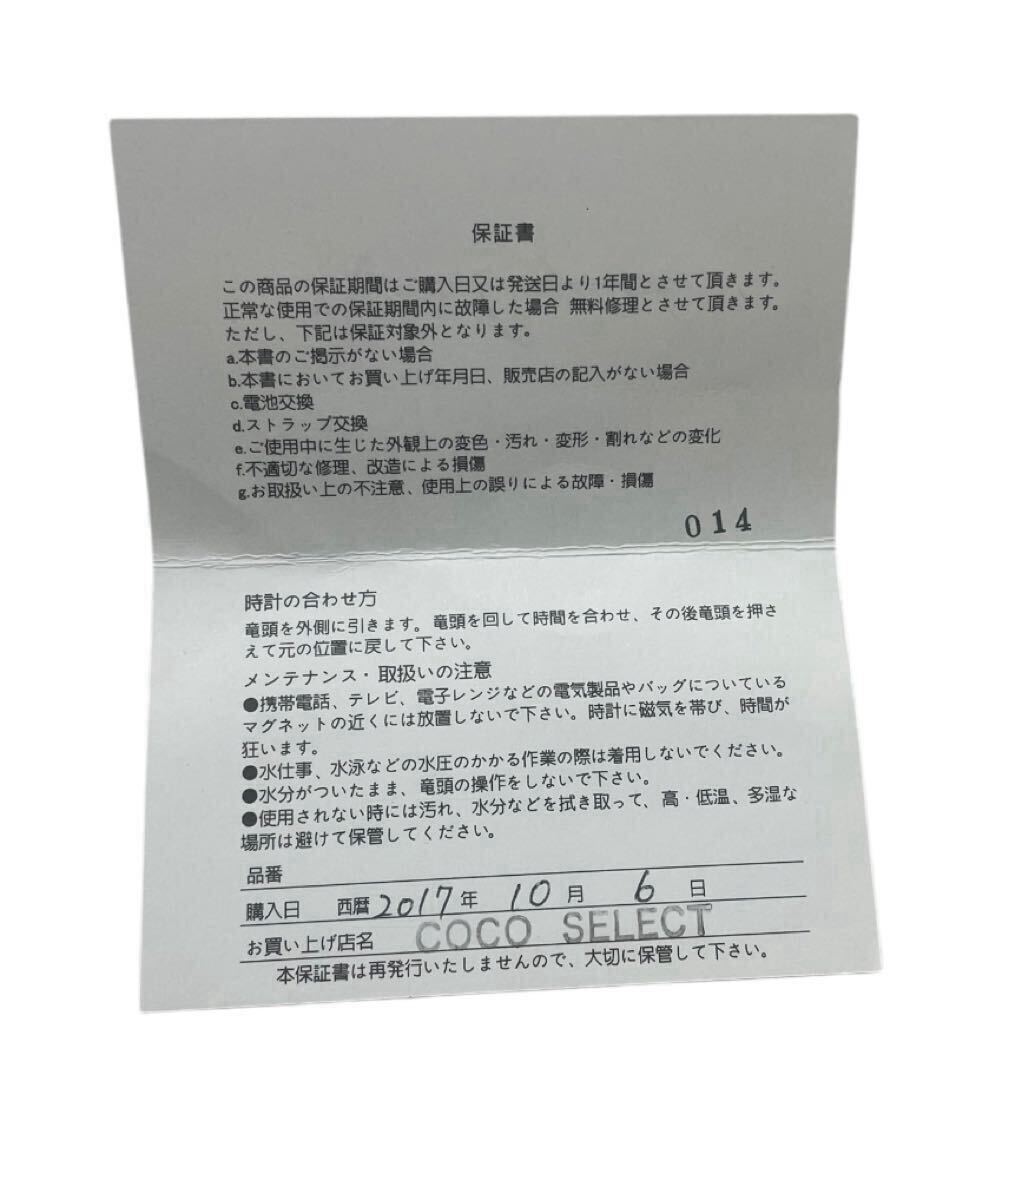 保証書
この商品の保証期間はご購入日又は発送日より1年間とさせて頂きます。
正常な使用での保証期間内に故障した場合 無料修理とさせて頂きます。
ただし、下記は保証対象外となります。
a.本書のご掲示がない場合
b.本書においてお買い上げ年月日、販売店の記入がない場合
c.電池交換
d.ストラップ交換
e.ご使用中に生じた外観上の変色・汚れ・変形・割れなどの変化
f.不適切な修理、改造による損傷
g.お取扱い上の不注意、使用上の誤りによる故障・損傷
014
時計の合わせ方
竜頭を外側に引きます。竜頭を回して時間を合わせ、その後竜頭を押さ
えて元の位置に戻して下さい。
メンテナンス・取扱いの注意
●携帯電話、テレビ、電子レンジなどの電気製品やバッグについている
マグネットの近くには放置しないで下さい。時計に磁気を帯び、時間が
狂います。
●水仕事、水泳などの水圧のかかる作業の際は着用しないでください。
●水分がついたまま、竜頭の操作をしないで下さい。
●使用されない時には汚れ、水分などを拭き取って、高・低温、多湿な
場所は避けて保管してください。
品番
購入日 西暦2017年 10月 6日
お買い上げ店名 COCO SELECT
本保証書は再発行いたしませんので、大切に保管して下さい。